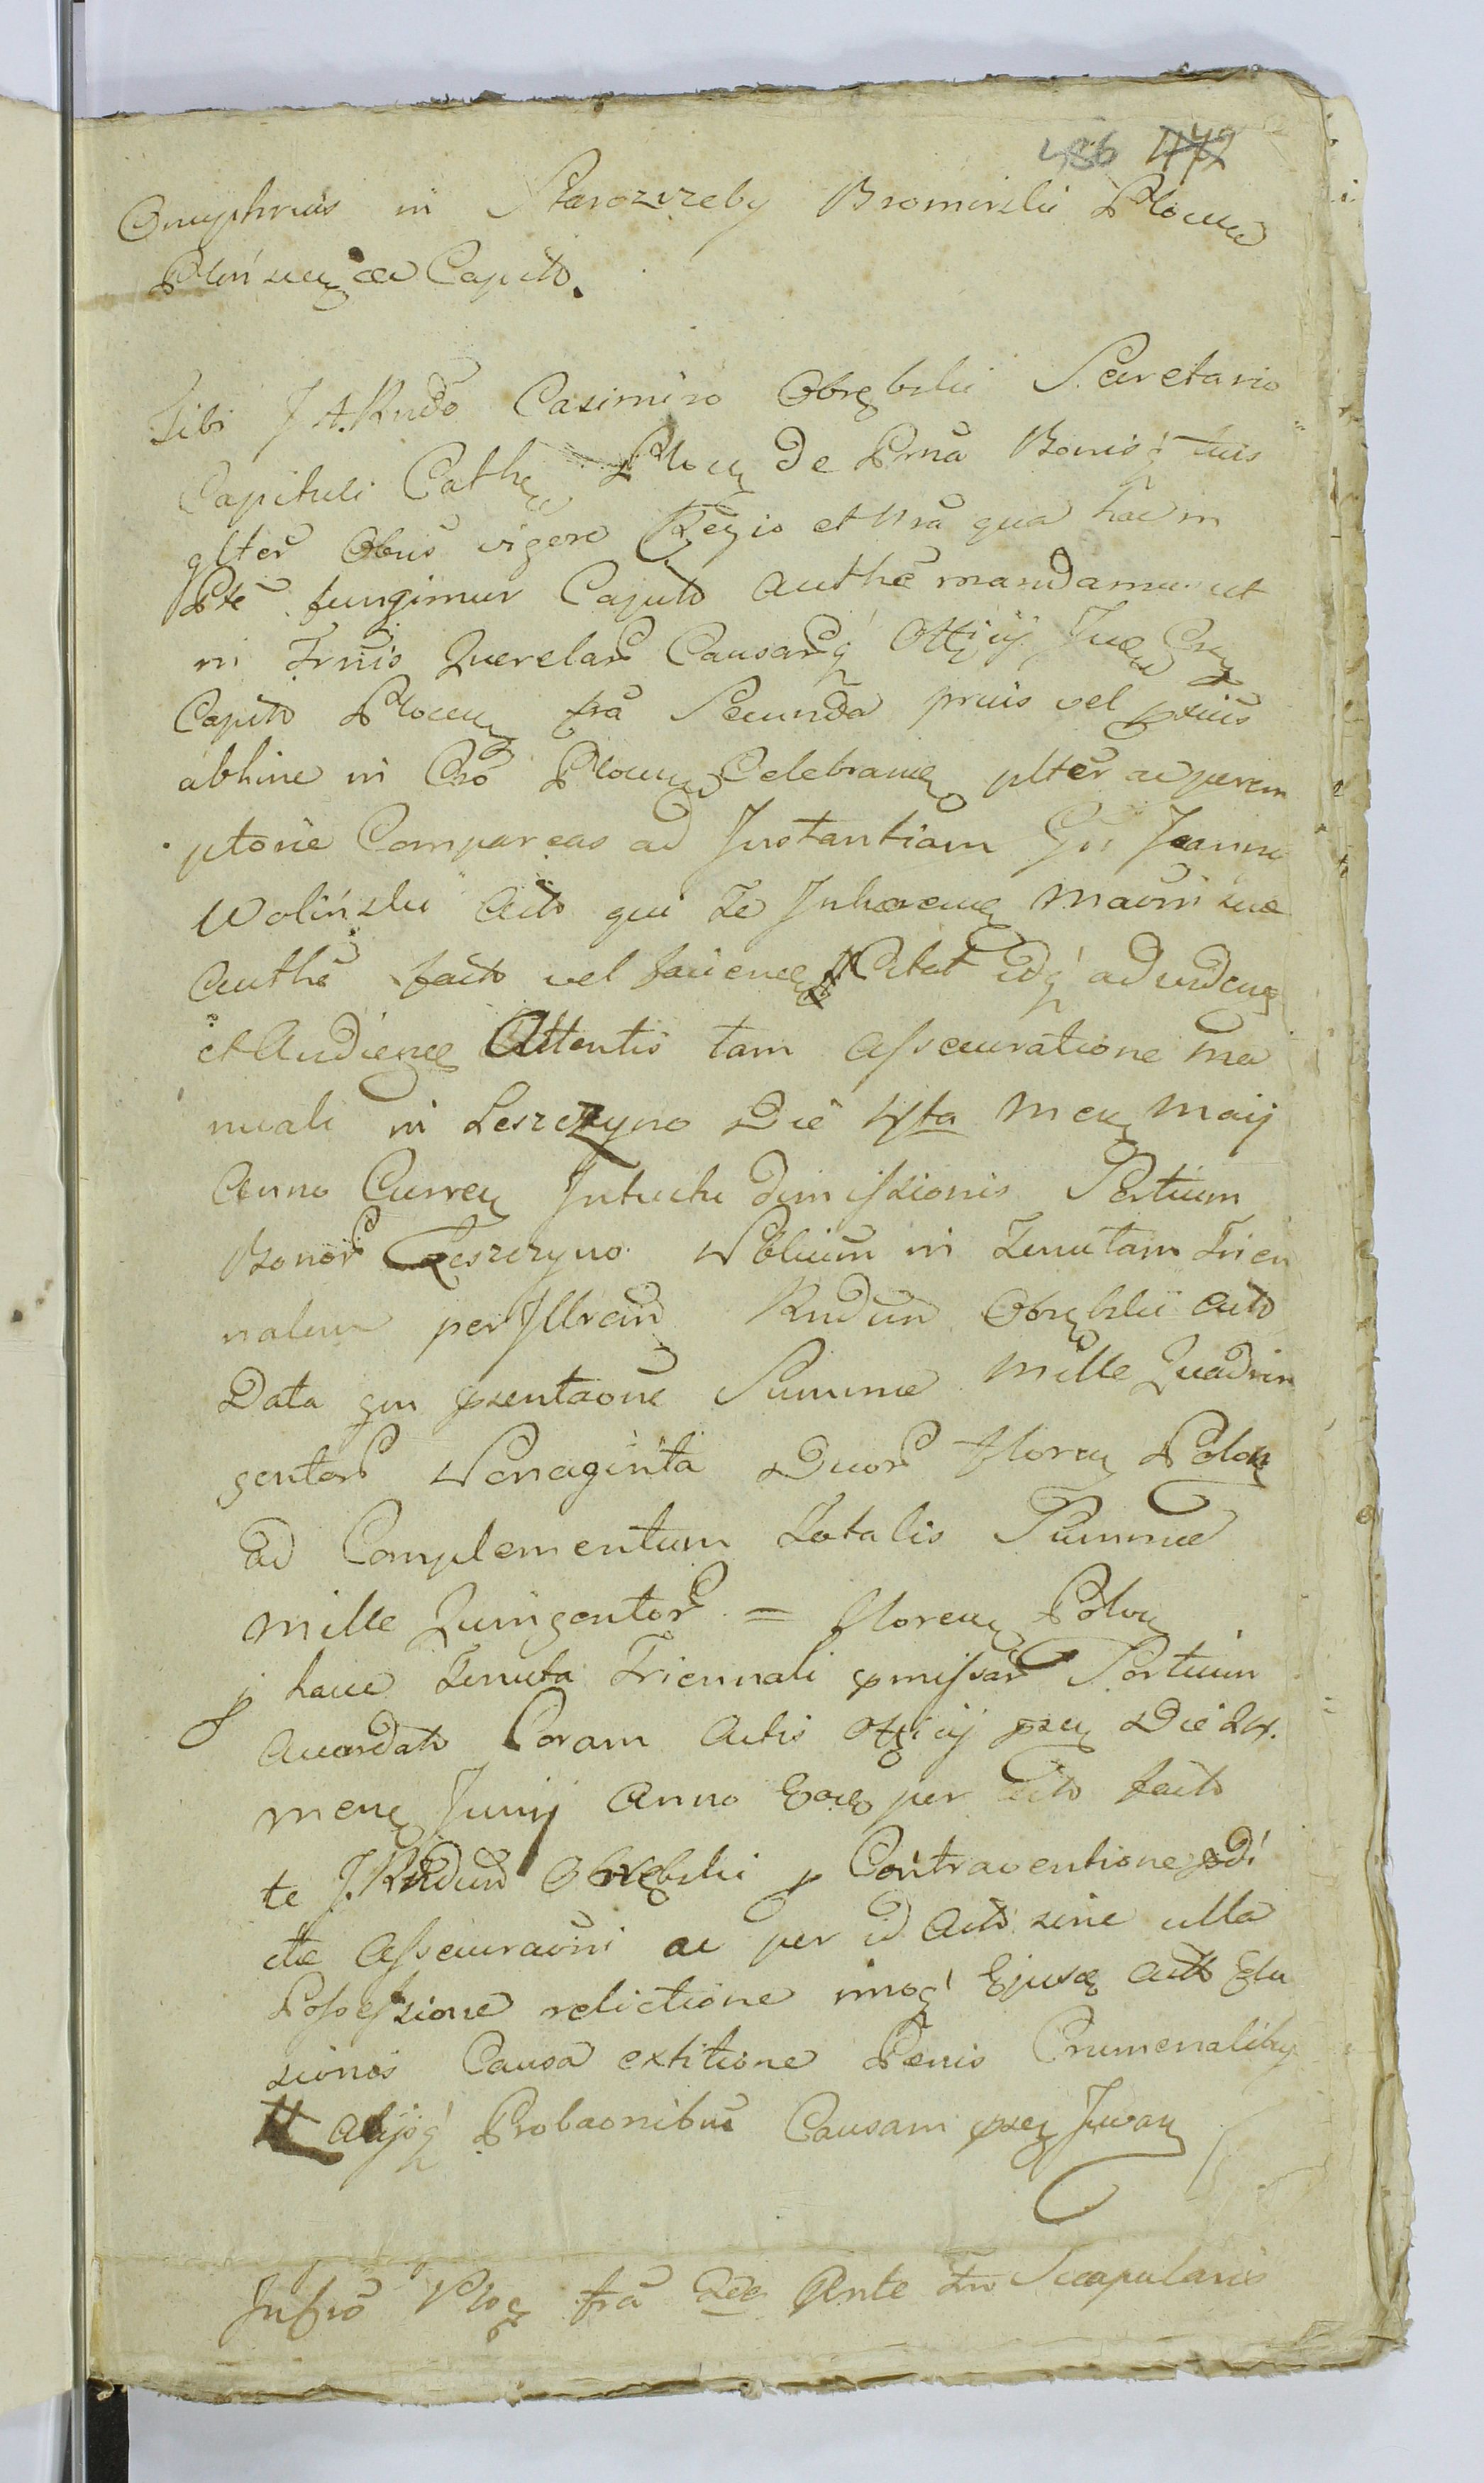 486 472
Onuphrius in Starozreby Bromirski Plocen
Plońscen ac Capito.
Tibi J A.Rndo Casimiro Obrębski Secretario
Capituli Cathe Plocen De Prna Bonisq tuis
glter Obus vigore Regio et Nra qua hac in
Pte fungimur Capito Authe mandamus ut
in Trnis Querelar Causarq Officij
Capito Plocen fra Secunda prius vel pxius
abhinc in Cro Plocen Celebranen plter ac perem
ptorie Compareas ad Instantiam Gsi Joannis
Woliński Acto qui Te Inhaeren Maoni suae
Authe facto vel facienen Citat idq ad viden
et Audienen Attentis tam Assecuratione ma
nuali in Leszczyno Die 4ta Men Maij
Anno Curren Intuitu dimissionis Portium
Bonor Leszczyno Nblium in Tenutam Trien
nalem per Illrem Rndum Obrębski Acto
Data qm pxentaone Summae Mille Quadrin
gentor Nonaginta Duor floren Polon
ad Complementum Totalis Summae
Mille Quingentor = floren Polon
p hace Tenuta Triennali pmissar Portium
Accordato Coram Actis Officij pxen Die 24.
mens Junij Anno Eoden per Acto facto
te J.Rndum Obrębski p Contraventione pdi
ctae Assecuraoni ac per id Acto sine ulla
Possessione relictione imoq Ejusde Acto Elu
sionis Causa extitione Penis Crumenalibus
Alijsq Probaonibus Causam pxen Juvan
In foro Ploc fra 2da Ante Fm Scapularis